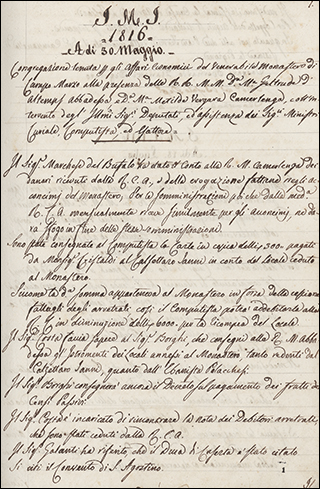 J. M. J.
1816.
A di 30. Maggio.
Congregazione tenuta gli affari Economici del Venerabile Monastero di
Campo Marzo alla presenza delle RR. M.M. Da. Ma. Geltrude d'
Altemps Abbadessa, e Da. Ma. Matilde Vergara Camerlenga, coll'in
tervento degl' Illmi Sigri Deputati, ed assistenza dei Sigri Ministri
Curiale Computista, ed Esattore
Il Sigr Marchese del Bufalo ha dato il Conto alla R. M. Camerlenga dei
denari ricevuti dalla R. C. A, e della erogazione fattane negli ac
concimi del Monastero, Per le somministrazioni poi che dalla med.a
R. C. A. mensualmente riceve per gli Acconcimi, ne da
rà sfogo in fine della somministrazione.
Sono state consegnate al Computista le Carte in copia delli 300. pagati
da Cristaldi al Janni in conto del locale ceduto
al Monastero.
Siccome la da. somma apparteneva al Monastero in forza della cessione
fattagli degli arretrati, così il Computista potrà addebitarla alli
in diminuzione delli 6000. per la ricompra del Locale
Il Sigr farà sapere al Sigr Borghi che consegni alla R. M. Abba
dessa gl' Istromenti dei Locali annessi al Monastero tanto venduti dal
Janni, quanto dall' Palachesi.
Il Sigr Borghi consegnerà ancora il Decreto sul pagamento dei frutti dei
Censi Passivi.
Il Sigr è incaricato di rincontrare la nota dei Debitori arretrati
che sono stati ceduti dalla R. C. A.
Il Sigr Galanti ha riferito, che il Duca di Caserta è stato citato
Si citi il Convento di S. Agostino.
1